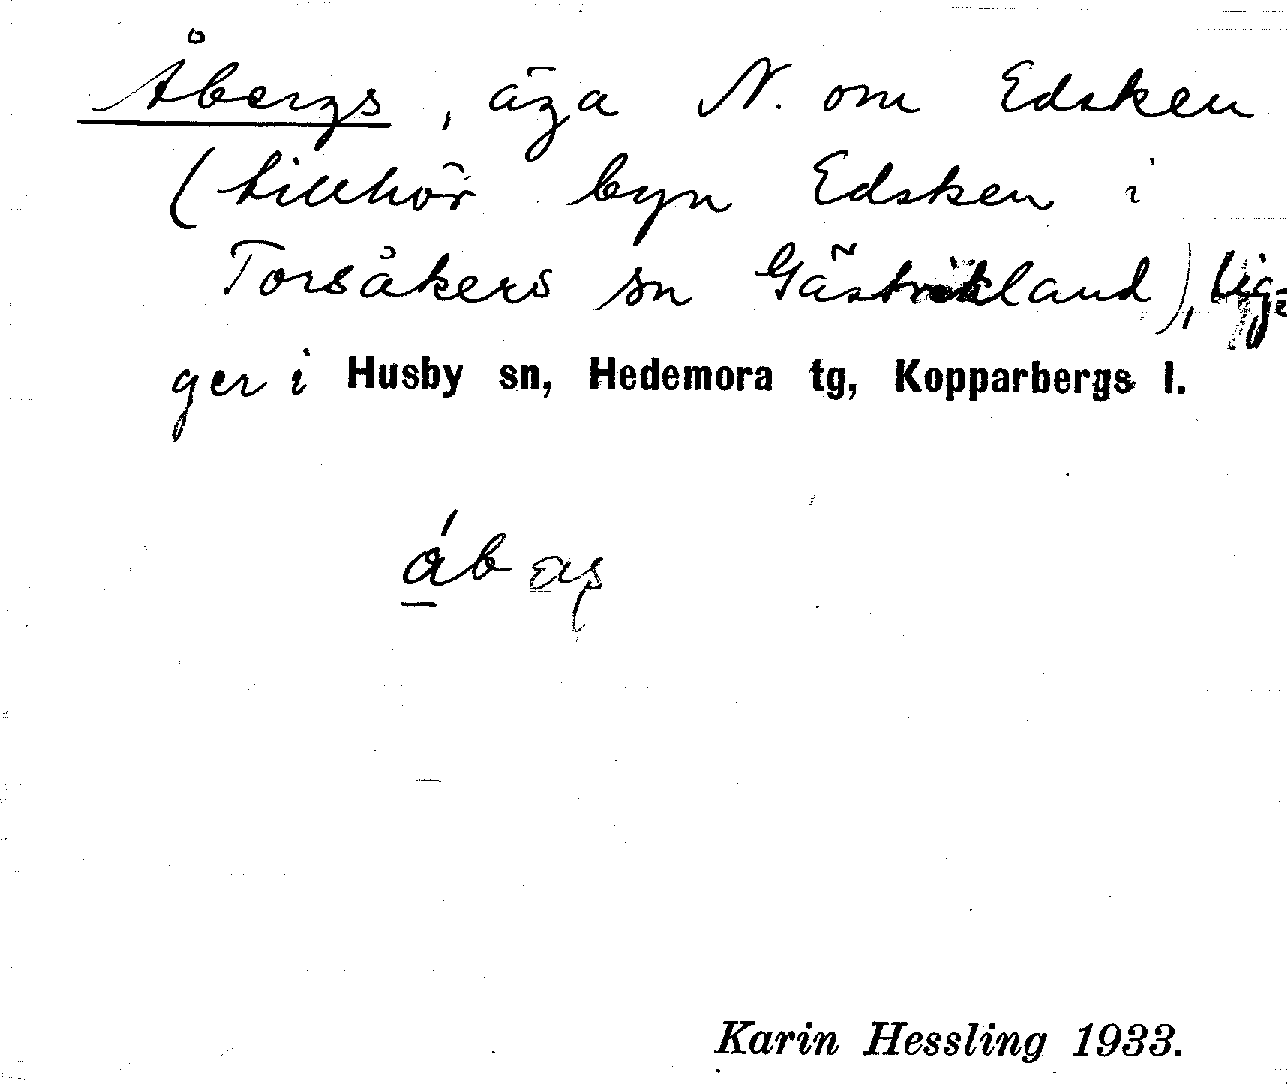 Åbergs, äga N. om Edsken
(tillhör byn Edsken i
Torsåkers sn Gästrikland), lig=
ger i Husby sn, Hedemora tg, Kopparbergs l.
Karin Hessling 1933.